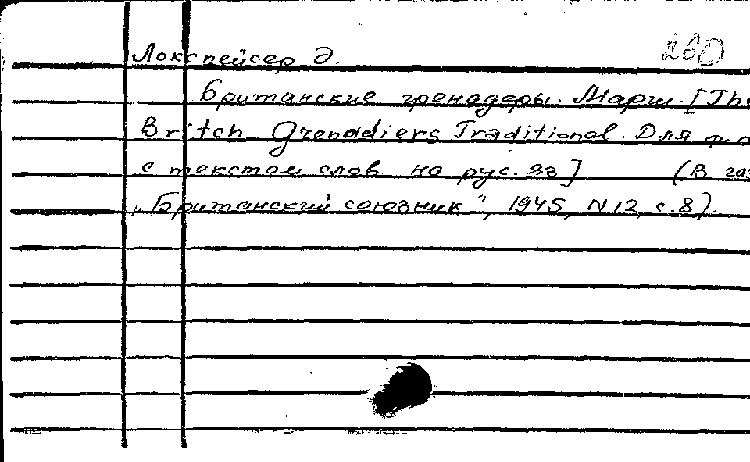 Локспейсер Э. 260
Британские гренадеры. Марш. [The
Britch Grenadiers Traditional. Для ф-п
с текстом слов на рус. яз] (В газ
"Британский союзник", 1945, N 12, с. 8).